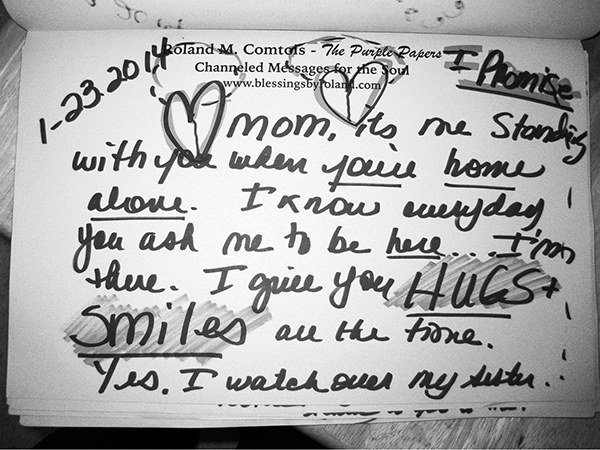 Roland M. Comtois - The Purple Papers
Channeled Messages for the Soul
www.blessingsbyroland.com
1-23.2014
I Promise
Mom, its me Standing
with you when you're home
alone. I know everyday
you ask me to be here... I'm
there. I give you HUGS +
Smiles all the time.
Yes, I watch over my sister..